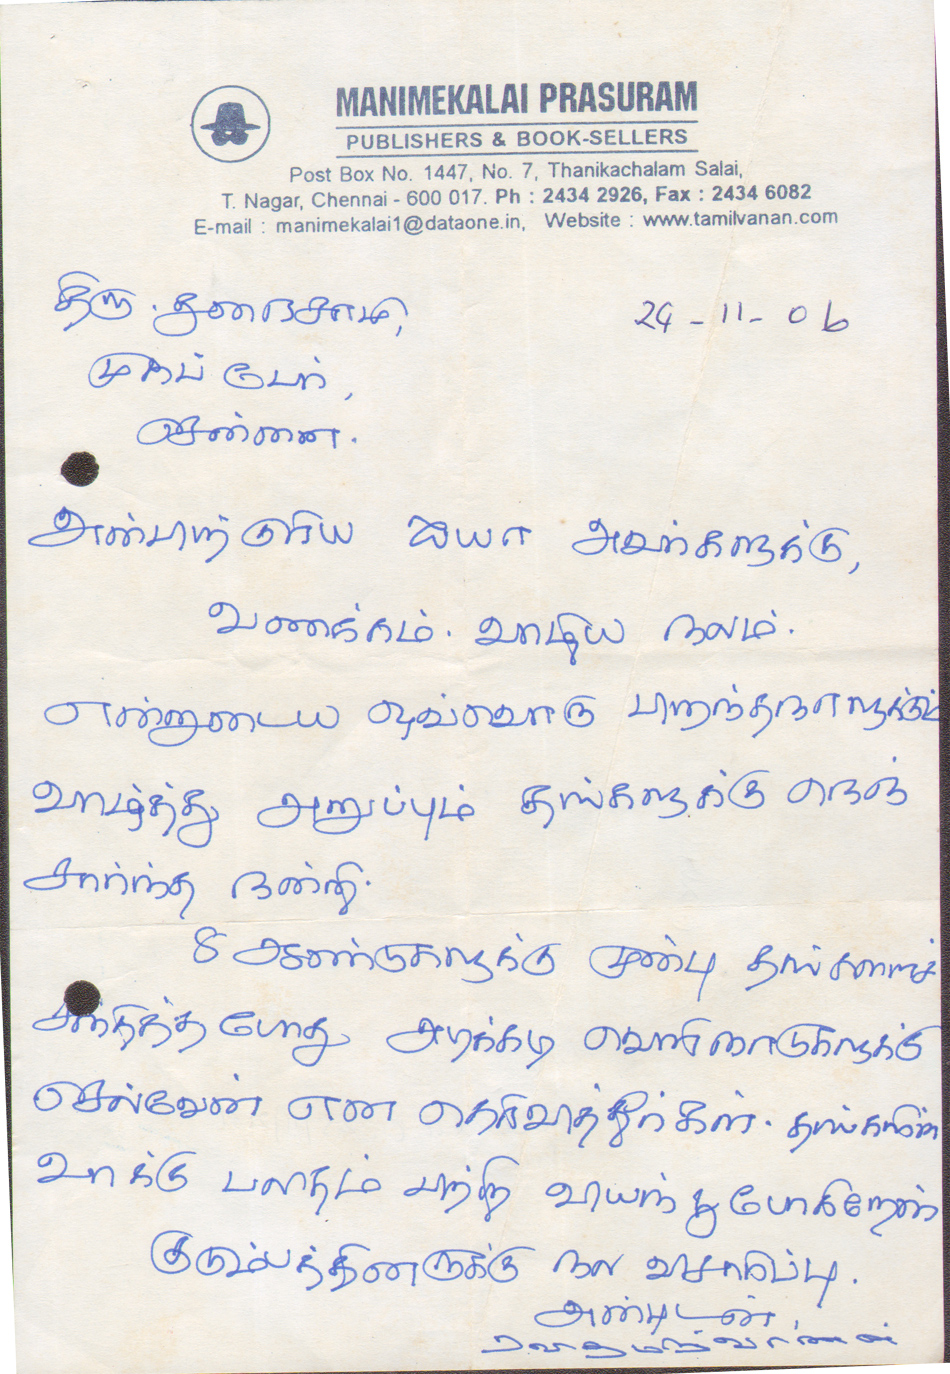 MANIMEKALAI PRASURAM
PUBLISHERS & BOOK-SELLERS
Post Box No. 1447, No. 7, Thanikachalam Salai,
T. Nagar, Chennai - 600 017. Ph : 2434 2926, Fax : 2434 6082
E-mail : manimekalai1@dataone.in, Website : www.tamilvanan.com
திரு. துரைசாமி,
24-11-06
முகப்பேர்,
சென்னை.
அன்பிற்குரிய ஐயா அவர்களுக்கு,
வணக்கம். வாழிய நலம்.
என்னுடைய ஒவ்வொரு பிறந்தநாளுக்கும்
வாழ்த்து அனுப்பும் தங்களுக்கு நெஞ்
சார்ந்த நன்றி.
8 ஆண்டுகளுக்கு முன்பு தங்களைச்
சந்தித்த போது அடிக்கடி வெளிநாடுகளுக்கு
செல்வேன் என தெரிவித்தீர்கள். தங்களின்
வாக்கு பலிதம் பற்றி வியந்து போகிறேன்
குடும்பத்தினருக்கு என்
அன்புடன்,